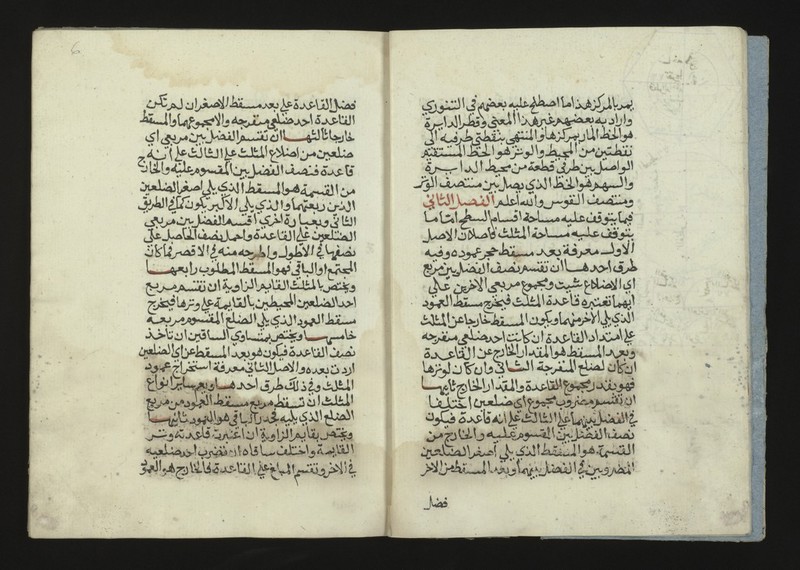 يمر بالمركز هذا ما اصطلح عليه بعضهم في التنوري
واراد به بعضهم غير هذا المعنى وقطر الدايرة
هو الخط المار بمركزها والمنتهى بنقطتي طرفيه الى
نقطتين من المحيط والوتر هو الخط المستقيم
الواصل بين طرفي قطعة من محيط الدايرة
والسهم هو الخط الذي يصل بين منتصف الوتر
ومنتصف القوس والله اعلم الفصل الثاني
فيما يتوقف عليه مساحة اقسام السطح اما ما
يتوقف عليه مساحة المثلث فاصلان الاصل
الاول معرفة بعد مسقط حجر عموده وفيه
طرق احدها ان تقسم نصف الفضل بين مربع
اي الاضلاع شيت ومجموع مربعي الاخرين على
ايهما تعتبره قاعدة المثلث فيخرج مسقط العمود
الذي يلي الاخر منهما ويكون المسقط خارجا عن المثلث
على امتداد القاعدة ان كانت احد ضلعي منفرجه
وبعد المسقط هو المقدار الخارج عن القاعدة
ان كان لضلع المنفرجة الثاني وان كان لوترها
فهو بقدر مجموع القاعدة والمقدار الخارج ثانيها
ان تقسم مضروب مجموع اي ضلعين اختلفا
في الفضل بينهما على الثالث على انه قاعدة فيكون
نصف الفضل بين المقسوم عليه والخارج من
القسمة هو المسقط الذي يلي اصغر الضلعين
المضروبين في الفضل بينهما وبعد المسقط من الاخر
فضل
6
فضل القاعدة على بعد مسقط الاصغر ان لم تكن
القاعدة احد ضلعي منفرجه والا مجموعهما والمسقط
خارجا ثالثها ان تقسم الفضل بين مربعي اي
ضلعين من اضلاع المثلث على الثالث على انه
قاعدة فنصف الفضل بين المقسوم عليه والخارج
من القسمة هو المسقط الذي يلي اصغر الضلعين
الذين ربعتهما والذي يلي الاكبر يكون كما في الطريق
الثاني وبعبارة اخرى اقسم الفضل بين مربعي
الضلعين على القاعدة واحمل نصف الحاصل على
نصفها في الاطول واطرحه منه في الاقصر فما كان
المجتمع او الباقي فهو المسقط المطلوب رابعها
ويختص بالمثلث القايم الزاوية ان تقسم مربع
احد الضلعين المحيطين بالقايمة على وترها فيخرج
مسقط العمود الذي يلي الضلع المقسوم مربعه
خامسها ويختص بمتساوي الساقين ان تاخذ
نصف القاعدة فيكون هو بعد المسقط عن اي الضلعين
اردت بعده والاصل الثاني معرفة استخراج عمود
المثلث وفي ذلك طرق احدها ويعم ساير انواع
المثلث ان تسقط مربع مسقط العمود من مربع
الضلع الذي يليه فجذر الباقي هو العمود ثانيها
ويختص بقايم الزاوية ان اعتبرت قاعدته وتر
القايمة واختلف ساقاه ان تضرب احد ضلعيه
في الاخر وتقسم المبلغ على القاعدة فالخارج هو العمود